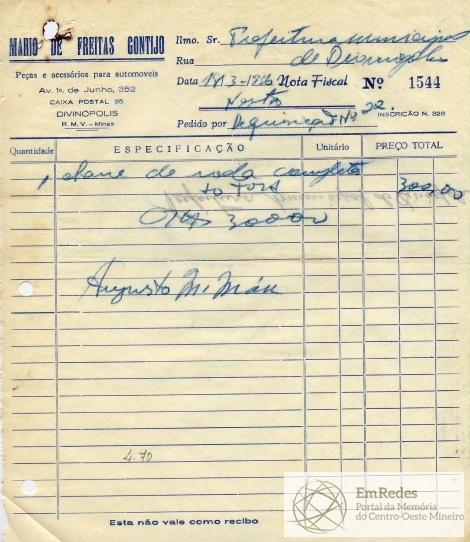 MARIO DE FREITAS GONTIJO
Peças e acessórios para automoveis
Av. 1º. de Junho, 352
CAIXA POSTAL 35
DIVINÓPOLIS
R. M. V. - Minas
Ilmo. Sr. Prefeitura Municipal
Rua de Divinopolis
Data Nota Fiscal Nº 1544
Nesta
Pedido por Requisição Nº 22.
INSCRIÇÃO N. 328
Quantidade ESPECIFICAÇÃO Unitário PREÇO TOTAL
1 chave de roda completa 300,00
300,00
Augusto M.
4.70
Esta não vale como recibo
EmRedes
Portal da Memória
do Centro-Oeste Mineiro